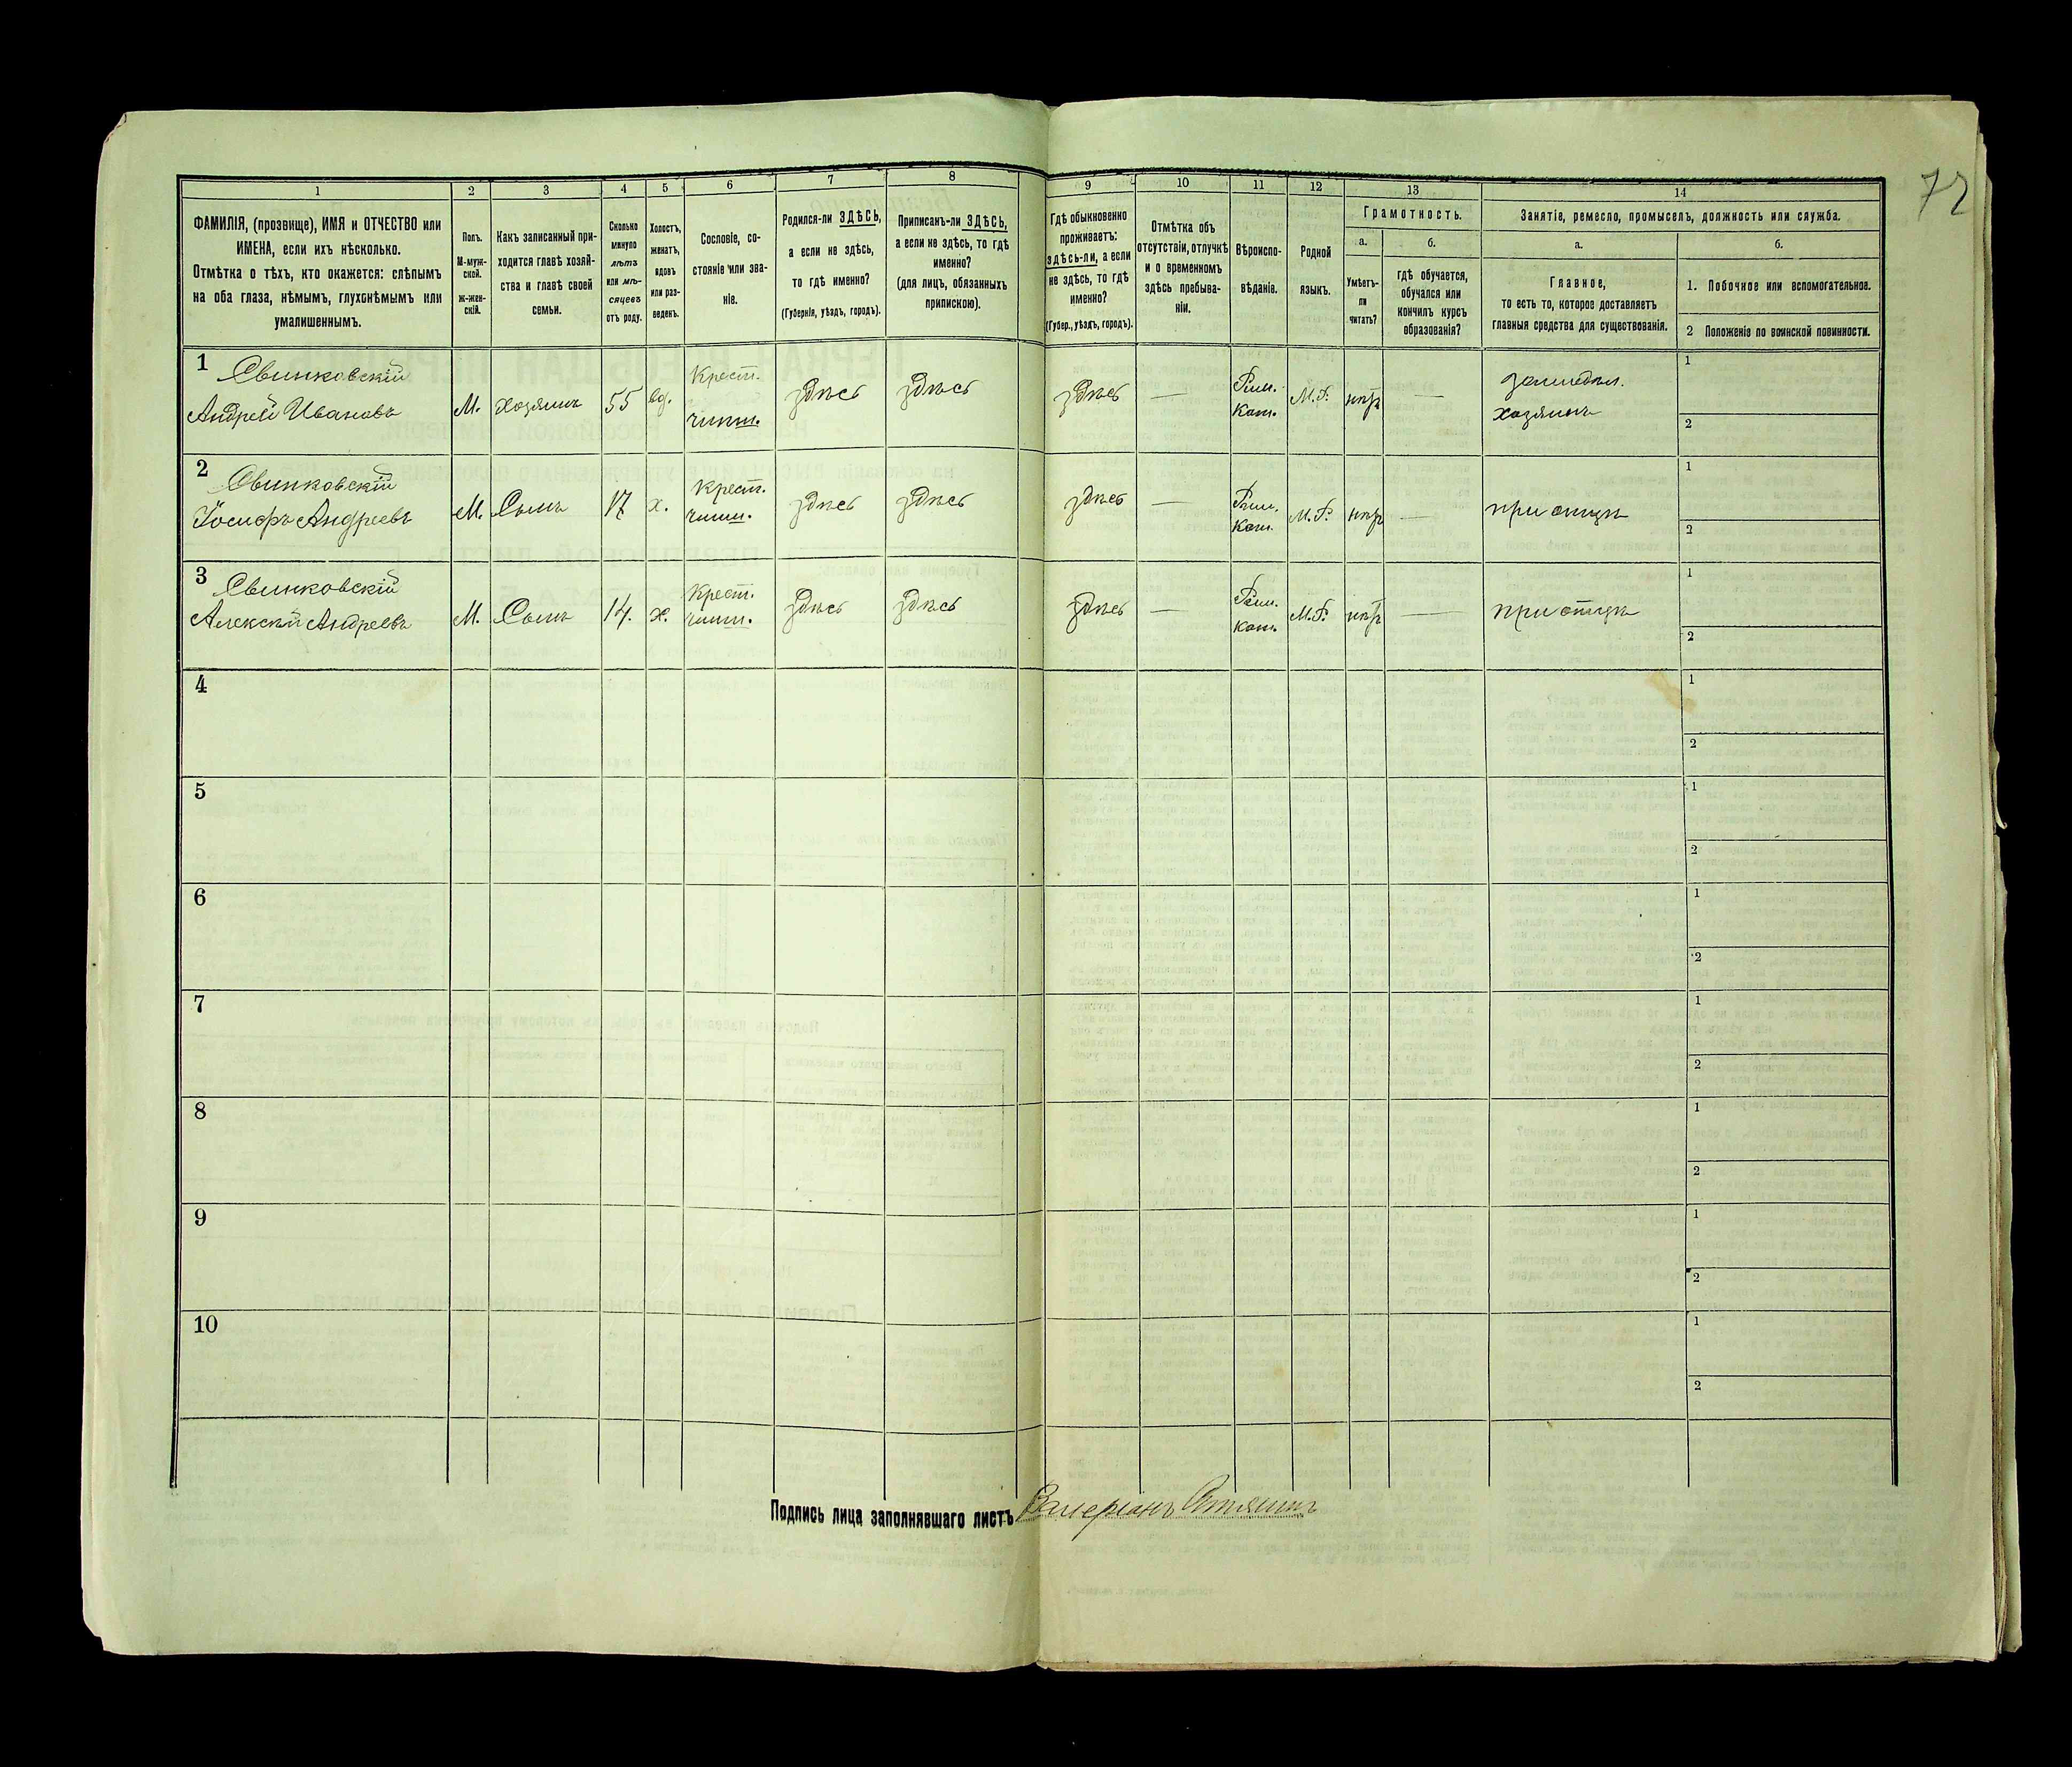 72
1 2 3 4 5 6 7 8 9 10 11 12 13 14
ФАМИЛІЯ, (прозвище), ИМЯ и ОТЧЕСТВО или
ИМЕНА, если ихъ нѣсколько.
Отмѣтка о тѣхъ, кто окажется: слѣпымъ
на оба глаза, нѣмымъ, глухонѣмымъ или
умалишеннымъ.
Полъ.
М-муж-
ской.
Ж-жен-
скій.
Какъ записанный при-
ходится главѣ хозяй-
ства и главѣ своей
семьи.
Сколько
минуло
лѣтъ
или мѣ-
сяцевъ
отъ роду.
Холостъ,
женатъ,
вдовъ
или раз-
веденъ.
Сословіе, со-
стояніе или зва-
ніе.
Родился-ли ЗДѢСЬ,
а если не здѣсь,
то гдѣ именно?
(Губернія, уѣздъ, городъ).
Приписанъ-ли ЗДѢСЬ,
а если не здѣсь, то гдѣ
именно?
(для лицъ, обязанныхъ
припискою).
Гдѣ обыкновенно
проживаетъ:
здѣсь-ли, а если
не здѣсь, то гдѣ
именно?
(Губер., уѣздъ, городъ).
Отмѣтка объ
отсутствіи, отлучкѣ
и о временномъ
здѣсь пребыва-
ніи.
Вѣроиспо-
вѣданіе.
Родной
языкъ.
Грамотность.
а. б.
Умѣетъ-
ли
читать?
гдѣ обучается,
обучался или
кончилъ курсъ
образованія?
Занятіе, ремесло, промыселъ, должность или служба.
а. б.
Главное,
то есть то, которое доставляетъ
главныя средства для существованія.
1. Побочное или вспомогательное.
2 Положеніе по воинской повинности.
1 Свинковскій
Андрей Ивановъ М. хозяинъ 55 вд. Крест. здѣсь здѣсь здѣсь — Рим. Кат. М.Р. — хозяинъ
1
2
2 Свинковскій
Іосифъ Андреевъ М. Сынъ 17 х. Крест. здѣсь здѣсь здѣсь — Рим. Кат. М.Р. — при отцѣ
1
2
3 Свинковскій
Алексѣй Андреевъ М. Сынъ 14. х. Крест. здѣсь здѣсь здѣсь — Рим. Кат. М.Р. — при отцѣ
1
2
4 1
2
5 1
2
6 1
2
7 1
2
8 1
2
9 1
2
10 1
2
Подпись лица заполнявшаго листъ Валеріанъ